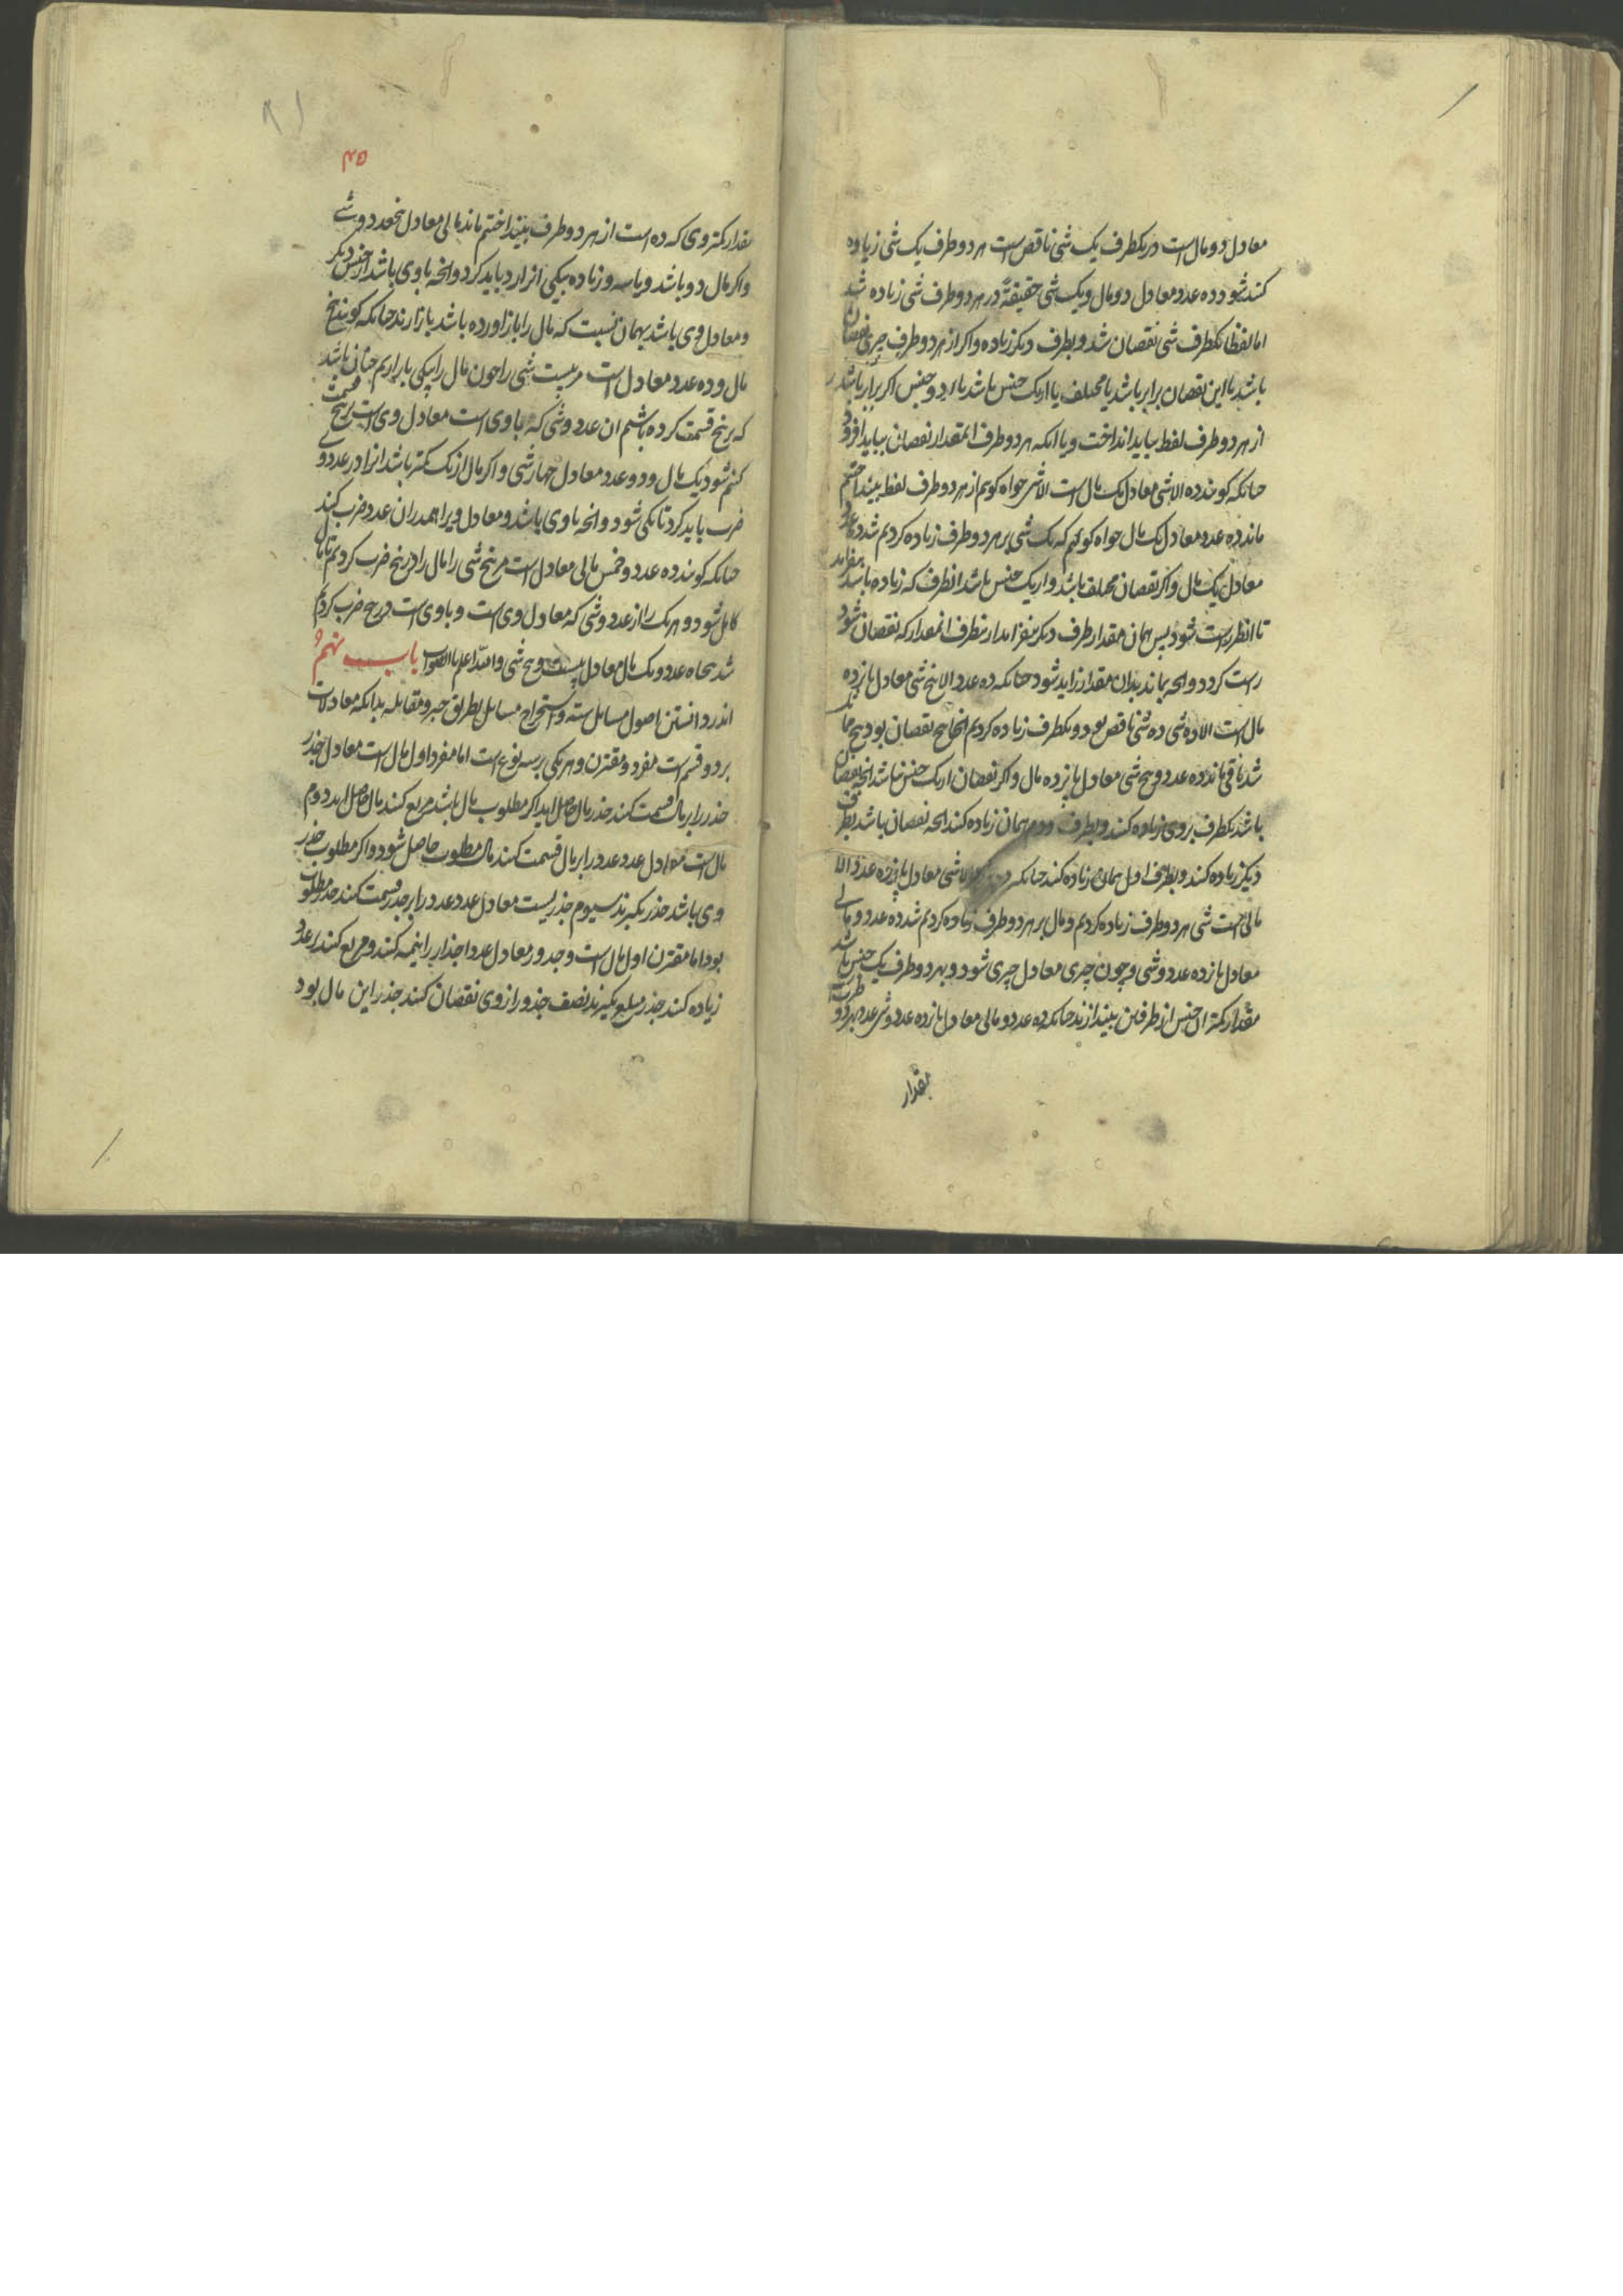 معادل دو مال است در یکطرف یک شی ناقص است هر دو طرف یک شی زیاده
کنند شود ده عدد معادل دو مال و یک شی حقیقة در هر دو طرف شی زیاده شد
اما لفظا یکطرف شی نقصان شد و بطرف دیکر زیاده و اکر از هر دو طرف چیزی نقصان
باشد یا این نقصان برابر باشد یا مختلف یا از یک جنس باشد یا از دو جنس اکر برابر باشد
از هر دو طرف لفظ بباید انداخت و یا انکه هر دو طرف را بمقدار نقصان بباید افزود
جنانکه کویند ده الا شی معادل یک مال است الا شی خواه کویم از هر دو طرف لفظ بینداختیم
ماند ده عدد معادل یک مال خواه کویم که یک شی بر هر دو طرف زیاده کردیم شد ده عدد
معادل یک مال و اکر نقصان مختلف باشد و از یک جنس باشد انطرف که زیاده باشد بیفزایند
تا انطرف راست شود پس همان مقدار طرف دیکر بیفزایند از ینطرف انمقدار که نقصان شود
راست کردد و انجه بماند بدان مقدار زاید شود جنانکه ده عدد الا پنج شی معادل پانزده
مال است الا ده شی ده شی ناقص بود و یکطرف زیاده کردیم انجا پنج نقصان بود پنج
شد باقی ماند ده عدد و پنج شی معادل پانزده مال و اکر نقصان از یک جنس نباشد انجه نقصان
باشد یکطرف بر وی زیاده کنند و بطرف دوم همان زیاده کنند انجه نقصان باشد بطرف
دیکر زیاده کنند و بطرف اول همان زیاده کنند جنانکه ده عدد الا شی معادل پانزده عدد الا
مالی است شی هر دو طرف زیاده کردیم و مال بر هر دو طرف زیاده کردیم شد ده عدد و مالی
معادل پانزده عدد و شی و چون چیزی معادل چیزی شود و بهر دو طرف یک جنس باشد
مقدار کمتر ان جنس از طرفین بیندازند جنانکه ده عدد و مالی معادل پانزده عدد و شی عدد بهر دو طرف است
بمقدار
۴۵
بمقدار کمتر وی که ده است از هر دو طرف بینداختیم ماند مالی معادل پنج عدد و شی
و اکر مال دو باشد و یا سه و زیاده بیکی باز ارد باید کرد و انجه با وی باشد از جنس دیکر
و معادل وی باشد بهمان نسبت که مال را باز اورده باشد باز ارند جنانکه کویند پنج
مال و ده عدد معادل است مر بیست شی را جون مال را بیکی باز اریم جنان باشد
که بر پنج قسمت کرده باشیم ان عدد و شی که با وی است معادل وی است بر پنج قسمت
کنیم شود یک مال و دو عدد معادل چهار شی و اکر مال از یک کمتر باشد انرا در عددی
ضرب باید کرد تا یکی شود و انجه با وی باشد و معادل ویرا همدران عدد ضرب کنند
جنانکه کویند ده عدد و خمس مالی معادل است مر پنج شی را مال را در پنج ضرب کردیم تا مال
کامل شود و هر یک را از عدد و شی که معادل وی است و با وی است در پنج ضرب کردیم
شد پنجاه عدد و یک مال معادل بیست و پنج شی و الله اعلم بالصواب باب نهم
اندر دانستن اصول مسایل سته و استخراج مسایل بطریق جبر و مقابله بدانکه معادلات
بر دو قسم است مفرد و مقترن و هر یکی بر سه نوع است اما مفرد اول مال است معادل جذر
جذر را بر مال قسمت کنند جذر مال حاصل اید اکر مطلوب مال باشد مربع کنند مال حاصل اید دوم
مال است معادل عدد عدد را بر مال قسمت کنند مال مطلوب حاصل شود و اکر مطلوب جذر
وی باشد جذر بکیرند سیوم جذریست معادل عدد عدد را بر جذر قسمت کنند جذر مطلوب
بود اما مقترن اول مال است و جذور معادل عدد اجذار را نیمه کنند و مربع کنند بر عدد
زیاده کنند جذر مبلغ بکیرند نصف جذور از وی نقصان کنند جذر این مال بود